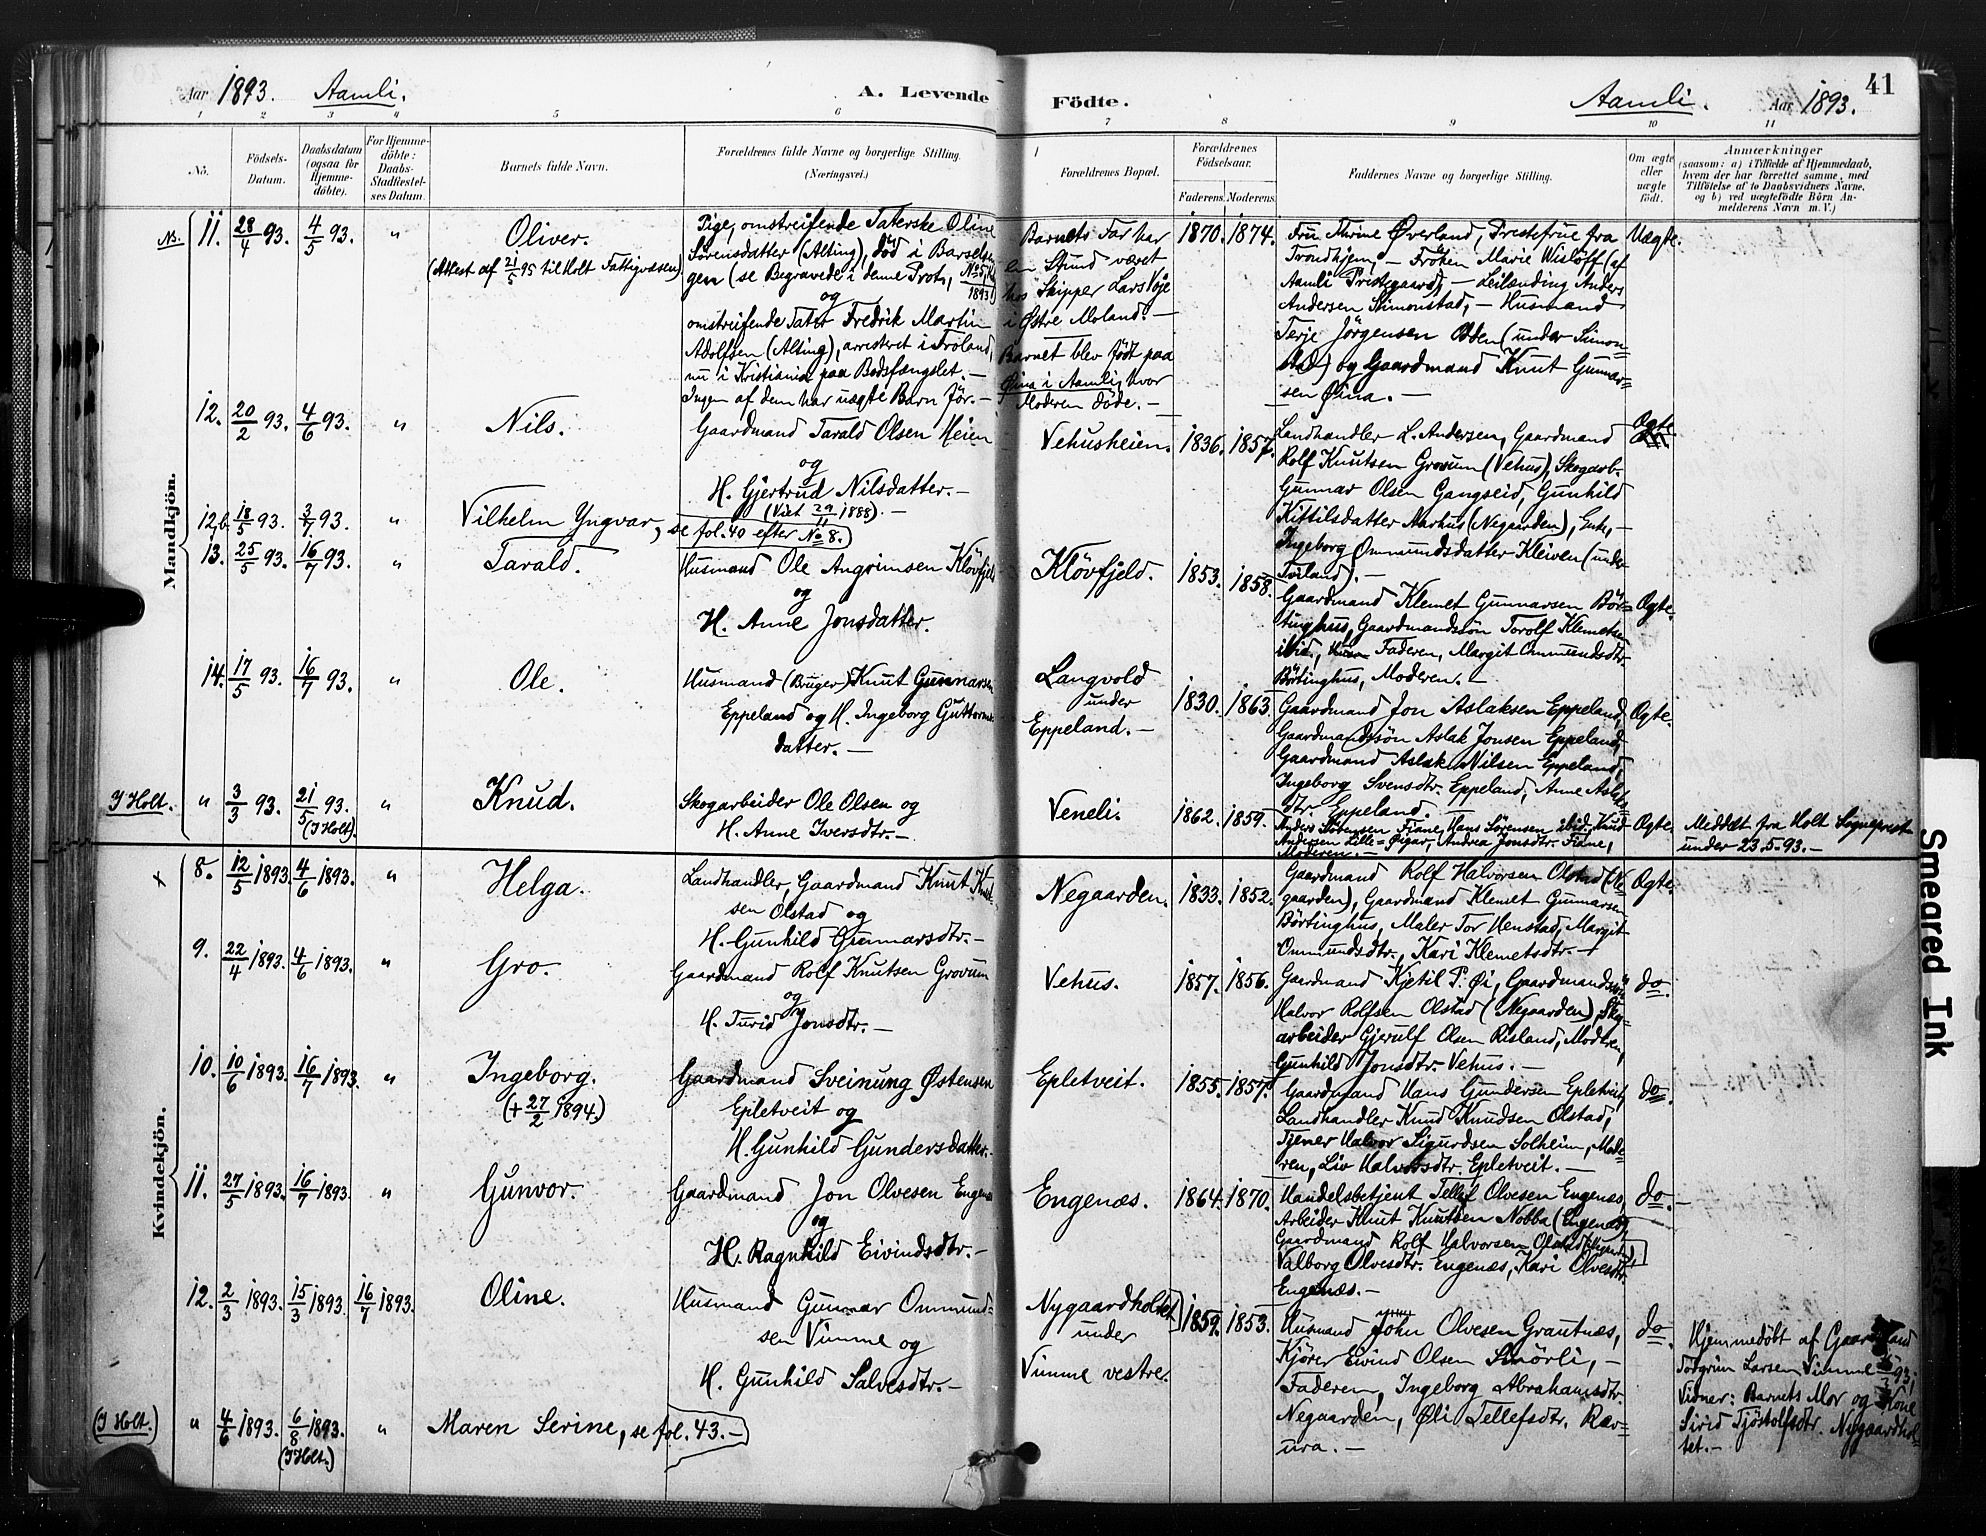 Aar 1893. Aamli. A. Levende
Födte. Aamli. Aar 1893. 41
1 2 3 4 5 6 7 8 9 10 11
No.
Födsels-
Datum.
Daabsdatum
(ogsaa for
Hjemme-
döbte).
For Hjemme-
döbte:
Daabs-
Stadfæstel-
ses Datum.
Barnets fulde Navn.
Forældrenes fulde Navne og borgerlige Stilling.
(Næringsvei.)
Forældrenes Bopæl.
Forældrenes
Födselsaar.
Faderens. Moderens.
Faddernes Navne og borgerlige Stilling.
Om ægte
eller
uægte
födt.
Anmærkninger
(saasom: a) i Tilfælde af Hjemmedaab,
hvem der har forrettet samme, med
Tilföielse af to Daabsvidners Navne,
og b) ved uægtefödte Börn An-
melderens Navn m. V.)
Mandkjön.
NB. 11. 28/4 93. 4/5 93. " Oliver.
(Attest af 21/5 95 til Holt Fattigvæsen)
Pige, omstreifende Taterske Oline
Sörensdatter (Alting), död i Barselsen-
gen (se Begravede i denne Prot., No 5, 1893)
og
omstreifende Tater Fredrik Martin
Adolfsen (Alting), arresteret i Froland,
nu i Kristiania paa Bodsfængslet. —
Ingen af dem har uægte Barn för. —
Barnets Far har
en Stund været
hos Skipper Lars Vöje
i Østre Moland. —
Barnet blev födt paa
Øina i Aamli, hvor
Moderen döde. —
1870. 1874.
Fru Thrine Øverland, Prestefrue fra
Trondhjem, — Fröken Marie Wislöff (af
Aamli Prestegaard), — Leilænding Anders
Andersen Simonstad, — Husmand
Terje Jörgensen Odden (under Simon-
stad) og Gaardmand Knut Gunnar-
sen Øina. —
Uægte.
12. 20/2 93. 4/6 93. " Nils.
Gaardmand Tarald Olsen Heien
og
H. Gjertrud Nilsdatter. —
(Viet 29/11 1888). —
Vehusheien. 1836. 1857.
Landhandler L. Andersen, Gaardmand
Rolf Knutsen Grovum (Vehus), Skogarb.
Gunnar Olsen Gangseid, Gunhild
Kittilsdatter Aarhus (Negaarden), Enke, —
Ingeborg Ommundsdatter Kleiven (under
Tviland). —
Ægte
12,b. 18/5 93. 3/7 93. " Vilhelm Yngvar, se fol. 40 efter No 8.
13. 25/5 93. 16/7 93. " Tarald.
Husmand Ole Angrimsen Klövfjeld
og
H. Anne Jonsdatter.
Klövfjeld. 1853. 1858.
Gaardmand Klemet Gunnarsen Bör-
tinghus, Gaardmandssön Torolf Klemetsen
ibid., Faderen, Margit Ommundsdtr.
Börtinghus, Moderen. —
Ægte.
14. 17/5 93. 16/7 93. " Ole.
Husmand (Bruger) Knut Gunnarsen
Eppeland og H. Ingeborg Guttorms-
datter. —
Langvold
under
Eppeland. —
1830. 1863.
Gaardmand Jon Aslaksen Eppeland,
Gaardmandssön Aslak Jonsen Eppeland,
Gaardmand Aslak Nilsen Eppeland,
Ingeborg Svensdtr. Eppeland, Anne Aslaks-
dtr. Eppeland.
Ægte.
I Holt. " 3/3 93. 21/5 93. (I Holt). " Knud.
Skogarbeider Ole Olsen og
H. Anne Iversdtr. —
Veneli. 1862. 1859.
Anders Sörensen Fiane, Hans Sörensen ibid., Knud
Andersen Lille-Øigar, Andrea Jonsdtr. Fiane,
Moderen. —
Ægte.
Meddelt fra Holt Sogneprest
under 23.5.93. —
Kvindekjön.
+ 8. 12/5 1893. 4/6 1893. " Helga.
Landhandler, Gaardmand Knut Knut-
sen Olstad og
H. Gunhild Gunnarsdtr. —
Negaarden. 1833. 1852.
Gaardmand Rolf Halvorsen Olstad (Ne-
gaarden), Gaardmand Klemet Gunnarsen
Börtinghus, Maler Tor Henstad, Margit
Ommundsdtr., Kari Klemetsdtr. —
Ægte.
9. 22/4 1893. 4/6 1893. " Gro.
Gaardmand Rolf Knutsen Grovum
og
H. Turid Jonsdtr. —
Vehus. 1857. 1856.
Gaardmand Kjetil P. Øi, Gaardmandssön
Halvor Rolfsen Olstad (Negaarden), Skog-
arbeider Gjerulf Olsen Risland, Moderen,
Gunhild Jonsdtr. Vehus. —
do.
10. 10/6 1893. 16/7 1893. " Ingeborg.
(+ 27/2 1894.)
Gaardmand Sveinung Østensen
Epletveit og
H. Gunhild Gundersdatter.
Epletveit. 1855. 1857.
Gaardmand Hans Gundersen Epletveit,
Landhandler Knud Knudsen Olstad,
Tjener Halvor Sigurdsen Solheim, Mode-
ren, Liv Halvorsdtr. Epletveit. —
do.
11. 27/5 1893. 16/7 1893. " Gunvor.
Gaardmand Jon Olvesen Engenæs
og
H. Ragnhild Eivindsdtr. —
Engenæs. 1864. 1870.
Handelsbetjent Tellef Olvesen Engenæs,
Arbeider Knut Knutsen Nobba (Engenæs),
Gaardmand Rolf Halvorsen Olstad
Valborg Olvesdtr. Engenæs, Kari Olvesdtr.
Engenæs. —
do. —
12. 2/3 1893. 15/3 1893. 16/7 1893. Oline.
Husmand Gunnar Ommund-
sen Vimme og
H. Gunhild Salvesdtr. —
Nygaardholtet
under
Vimme vestre.
1859. 1853.
Husmand John Olvesen Grautnæs,
Kjörer Eivind Olsen Smörli, —
Faderen, Ingeborg Abrahamsdtr.
Negaarden, Øli Tellefsdtr. Ræv-
ura. —
do.
Hjemmedöbt af Gaardmand
Torgrim Larsen Vimme 15/3 93;
Vidner: Barnets Mor og Kone
Sirid Tjöstolfsdtr. Nygaardhol-
tet. —
(I Holt.) " 4/6 1893. 6/8 1893. (I Holt.) " Maren Serine, se fol. 43. —
Smeared Ink